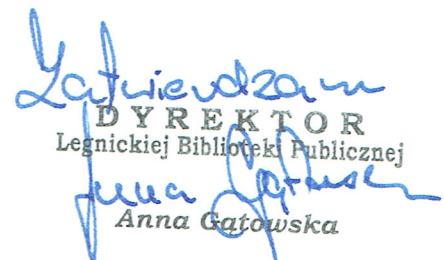 Zatwierdzam
DYREKTOR
Legnickiej Biblioteki Publicznej
Anna Gątowska
Anna Gątowska